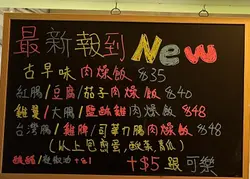 最新報到 New
古早味 肉燥飯 $35
紅腸/豆腐/茄子 肉燥飯 $40
雞蔓/大腸/鹽酥雞 肉燥飯 $48
台灣腸/雞脾/可單竹腸 肉燥飯 $48
(以上包煎蛋,酸菜,素瓜)
+$5 跟 可樂